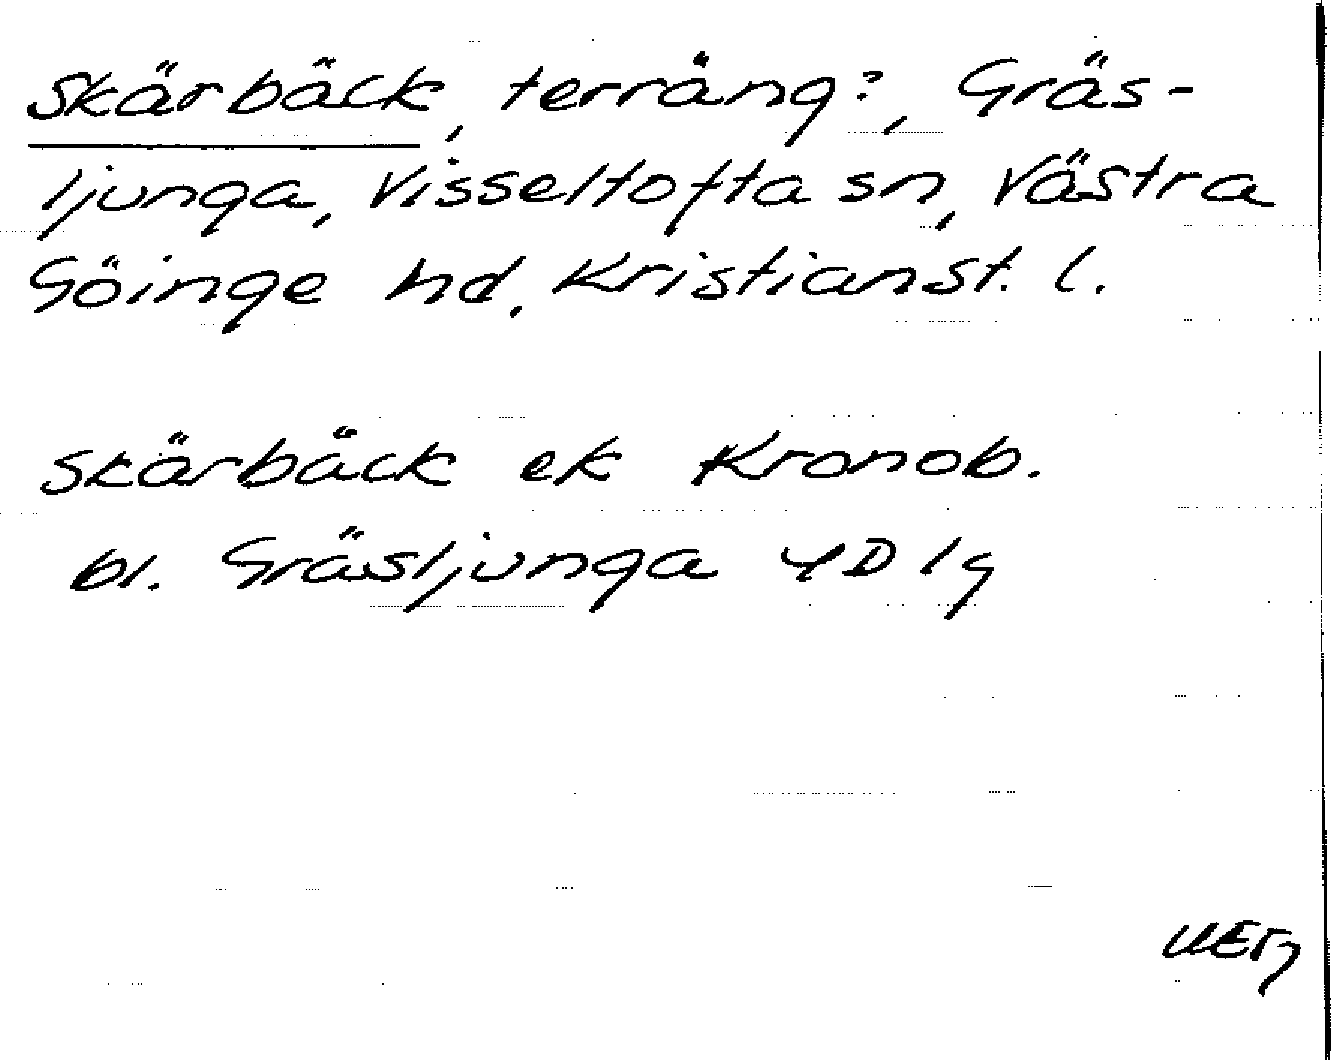 Skärbäck, terräng?, Gräs-
ljunga, Visseltofta sn, Västra
Göinge hd, Kristianst. l.
Skärbäck ek Kronob.
bl. Gräsljunga 4D 1g